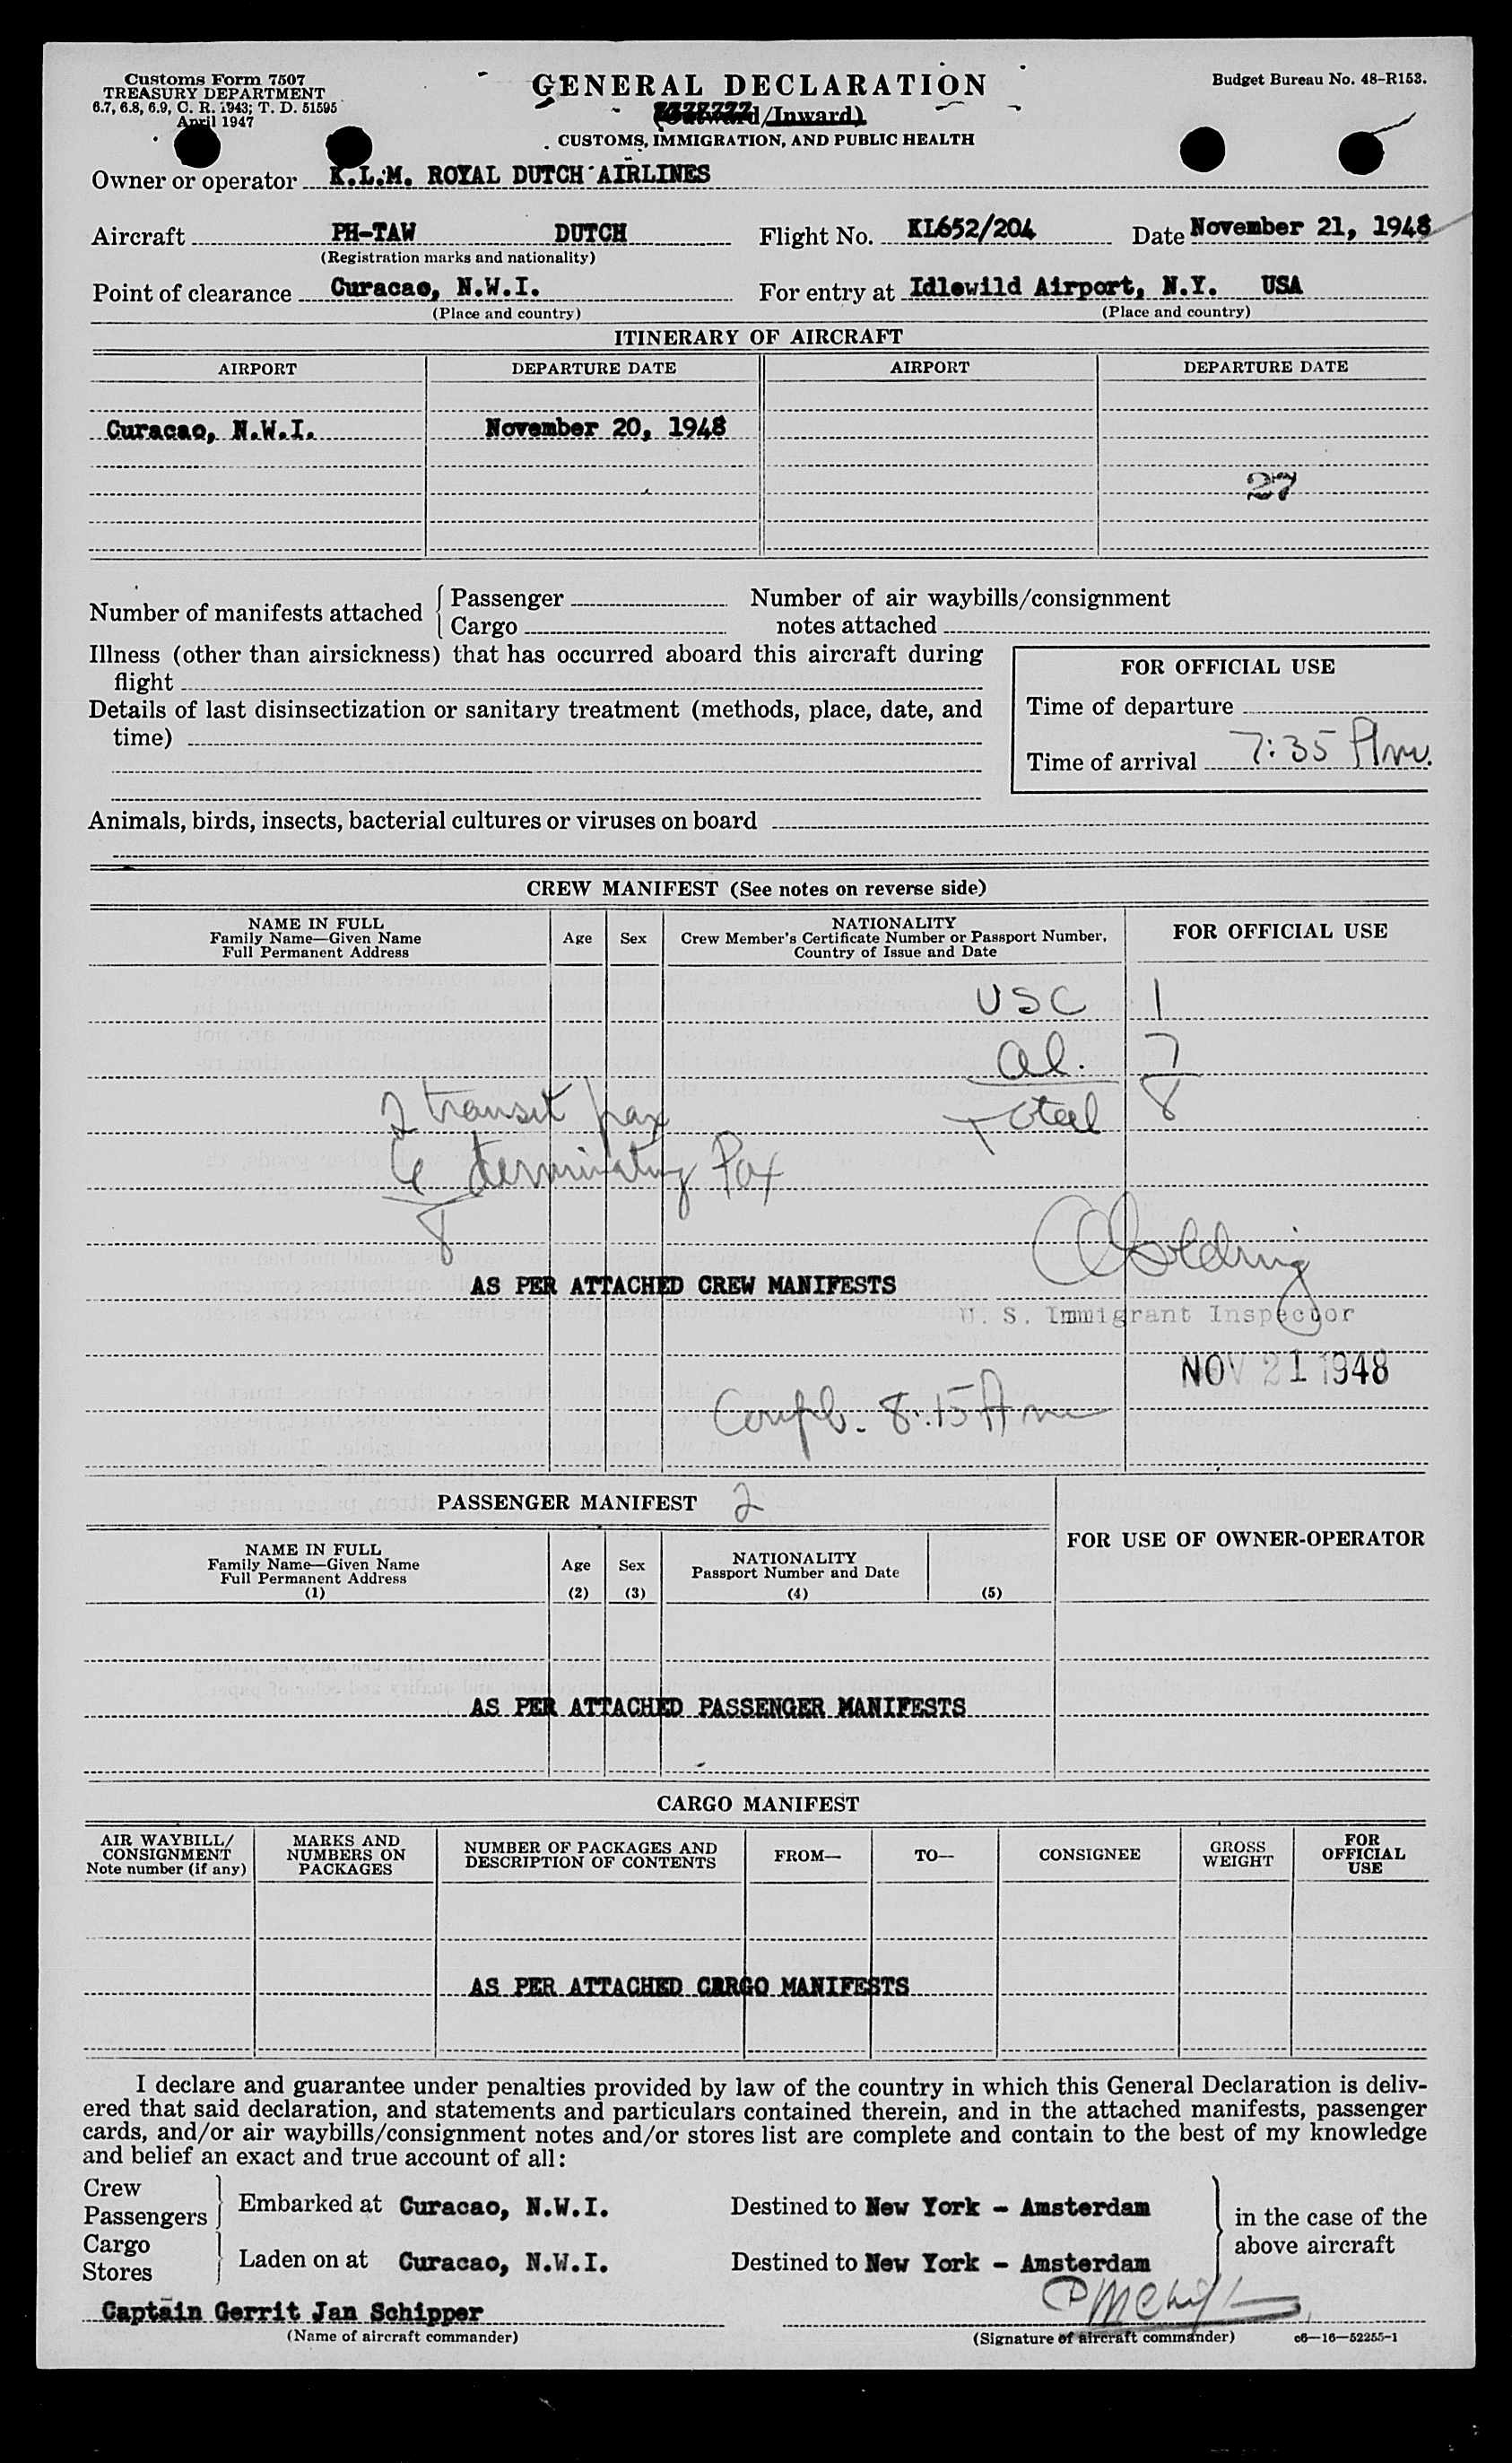 Customs Form 7507
TREASURY DEPARTMENT
6.7, 6.8, 6.9, C. R. 1943; T. D. 51595
April 1947
GENERAL DECLARATION
/Inward)
CUSTOMS, IMMIGRATION, AND PUBLIC HEALTH
Budget Bureau No. 48-R153.
Owner or operator K.L.M. ROYAL DUTCH AIRLINES
Aircraft PH-TAW DUTCH Flight No. KL652/204 Date November 21, 1948
(Registration marks and nationality)
Point of clearance Curacao, N.W.I. For entry at Idlewild Airport, N.Y. USA
(Place and country) (Place and country)
ITINERARY OF AIRCRAFT
AIRPORT DEPARTURE DATE AIRPORT DEPARTURE DATE
Curacao, N.W.I. November 20, 1948
27
Number of manifests attached { Passenger
Cargo
Number of air waybills/consignment
notes attached
Illness (other than airsickness) that has occurred aboard this aircraft during
flight
Details of last disinsectization or sanitary treatment (methods, place, date, and
time)
FOR OFFICIAL USE
Time of departure
Time of arrival 7:35 Am.
Animals, birds, insects, bacterial cultures or viruses on board
CREW MANIFEST (See notes on reverse side)
NAME IN FULL
Family Name—Given Name
Full Permanent Address
Age
Sex
NATIONALITY
Crew Member's Certificate Number or Passport Number,
Country of Issue and Date
FOR OFFICIAL USE
USC 1
al. 7
Total 8
2 transit pax
6 terminating Pax
8
AS PER ATTACHED CREW MANIFESTS
U. S. Immigrant Inspector
NOV 21 1948
Compl. 8:15 Am
PASSENGER MANIFEST 2
NAME IN FULL
Family Name—Given Name
Full Permanent Address
(1)
Age
(2)
Sex
(3)
NATIONALITY
Passport Number and Date
(4)
(5)
FOR USE OF OWNER-OPERATOR
AS PER ATTACHED PASSENGER MANIFESTS
CARGO MANIFEST
AIR WAYBILL/
CONSIGNMENT
Note number (if any)
MARKS AND
NUMBERS ON
PACKAGES
NUMBER OF PACKAGES AND
DESCRIPTION OF CONTENTS
FROM—
TO—
CONSIGNEE
GROSS
WEIGHT
FOR
OFFICIAL
USE
AS PER ATTACHED CARGO MANIFESTS
I declare and guarantee under penalties provided by law of the country in which this General Declaration is deliv-
ered that said declaration, and statements and particulars contained therein, and in the attached manifests, passenger
cards, and/or air waybills/consignment notes and/or stores list are complete and contain to the best of my knowledge
and belief an exact and true account of all:
Crew
Passengers
Embarked at Curacao, N.W.I. Destined to New York - Amsterdam
Cargo
Stores
Laden on at Curacao, N.W.I. Destined to New York - Amsterdam
in the case of the
above aircraft
Captain Gerrit Jan Schipper
(Name of aircraft commander)
(Signature of aircraft commander)
c6—16—52255-1